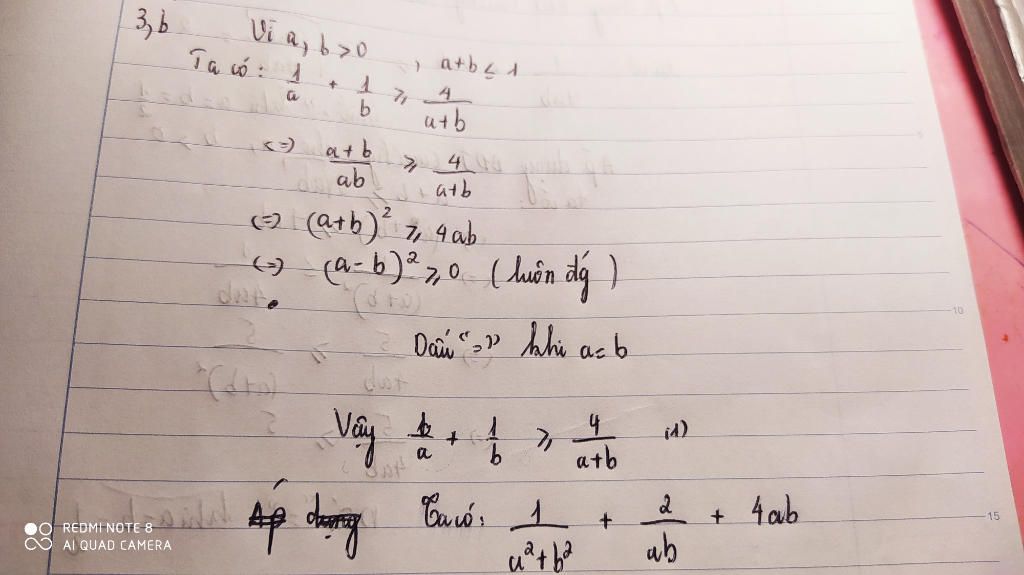 3,b Vì a, b > 0 , a+b ≤ 1
Ta có: 1/a + 1/b ≥ 4/(a+b)
<=> (a+b)/ab ≥ 4/(a+b)
<=> (a+b)² ≥ 4ab
<=> (a-b)² ≥ 0 (luôn đg)
Dấu "=" khi a = b
Vậy 1/a + 1/b ≥ 4/(a+b) (1)
Ta có: 1/(a²+b²) + 2/ab + 4ab
REDMI NOTE 8
AI QUAD CAMERA
10
15